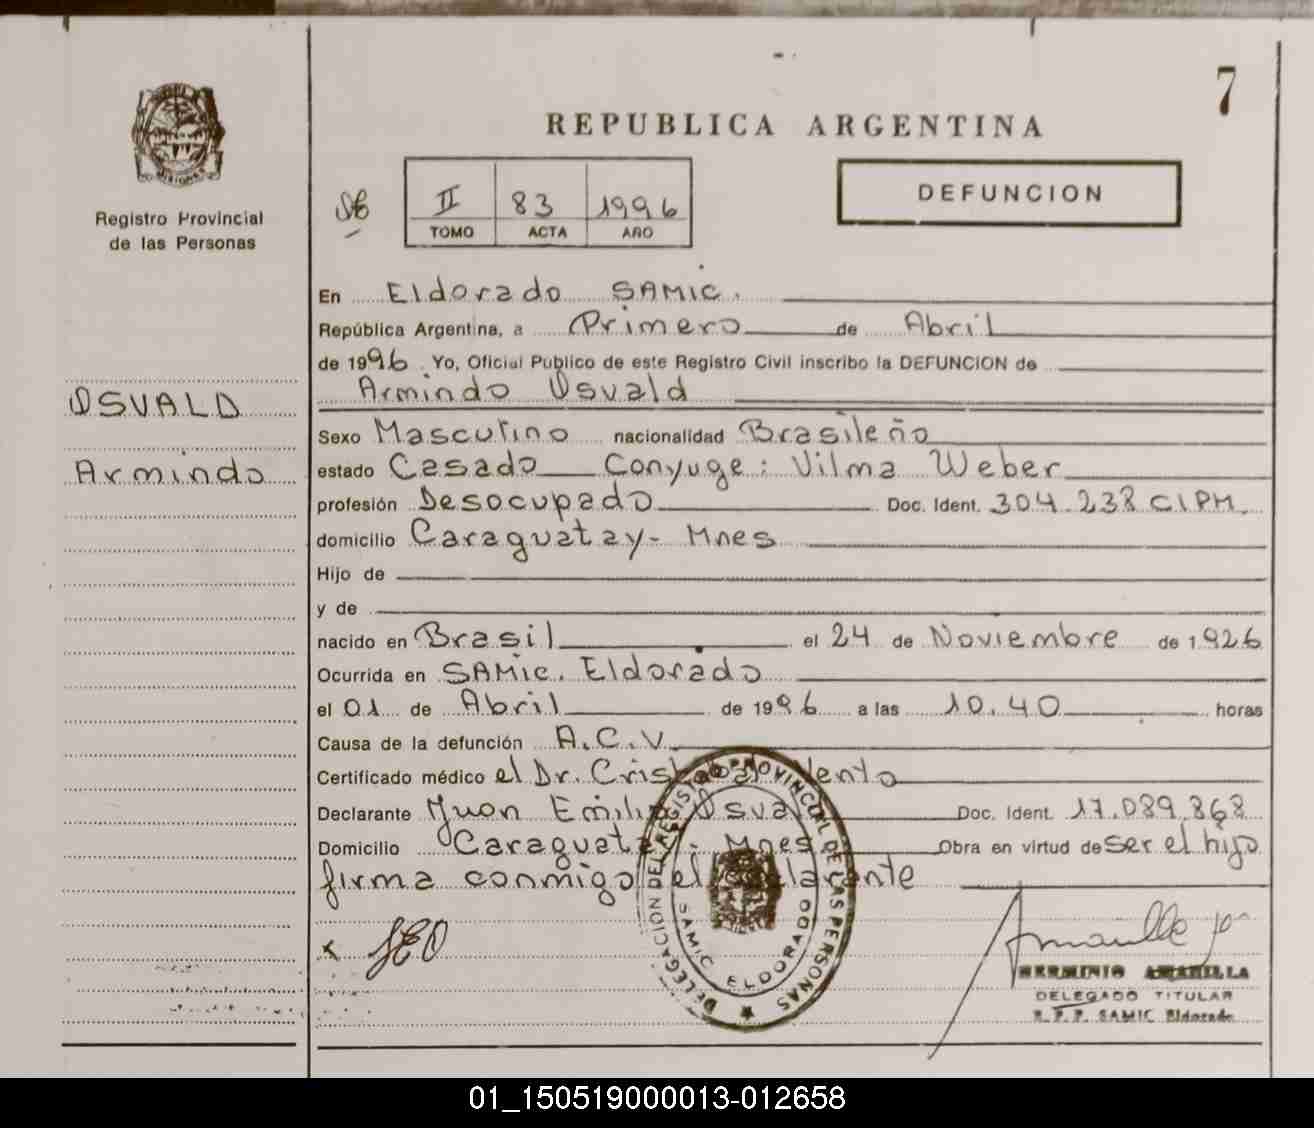 7
REPUBLICA ARGENTINA
MISIONES
Registro Provincial
de las Personas
II 83 1996
TOMO ACTA AÑO
DEFUNCION
En Eldorado SAMIC.
República Argentina, a Primero de Abril
de 1996. Yo, Oficial Público de este Registro Civil inscribo la DEFUNCION de
Armindo Osvald
OSVALD
Armindo
Sexo Masculino nacionalidad Brasileño
estado Casado Conyuge: Vilma Weber
profesión Desocupado Doc. Ident. 304.238 CIPM.
domicilio Caraguatay - Mnes
Hijo de
y de
nacido en Brasil el 24 de Noviembre de 1.926
Ocurrida en SAMIC. Eldorado
el 01 de Abril de 1996 a las 10.40 horas
Causa de la defunción A.C.V.
Certificado médico el Dr.
Declarante Juan Emilio Osvald Doc. Ident. 17.089.868
Domicilio Caraguatay - Mnes Obra en virtud de ser el hijo
firma conmigo el declarante
DELEGACION DEL REGISTRO PROVINCIAL DE LAS PERSONAS
SAMIC ELDORADO
x JEO
HERMINIO AMARILLA
DELEGADO TITULAR
R. P. P. SAMIC Eldorado
01_150519000013-012658